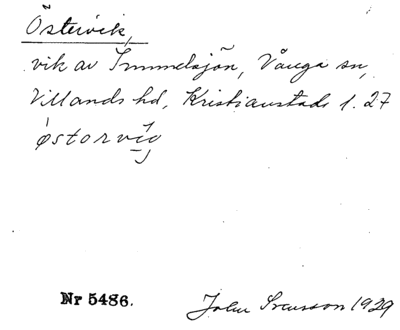 Östervik,
vik av Immelsjön, Vånga sn,
Villands hd, Kristianstads l. 27
østorvig
Nr 5486.
John Svensson 1929